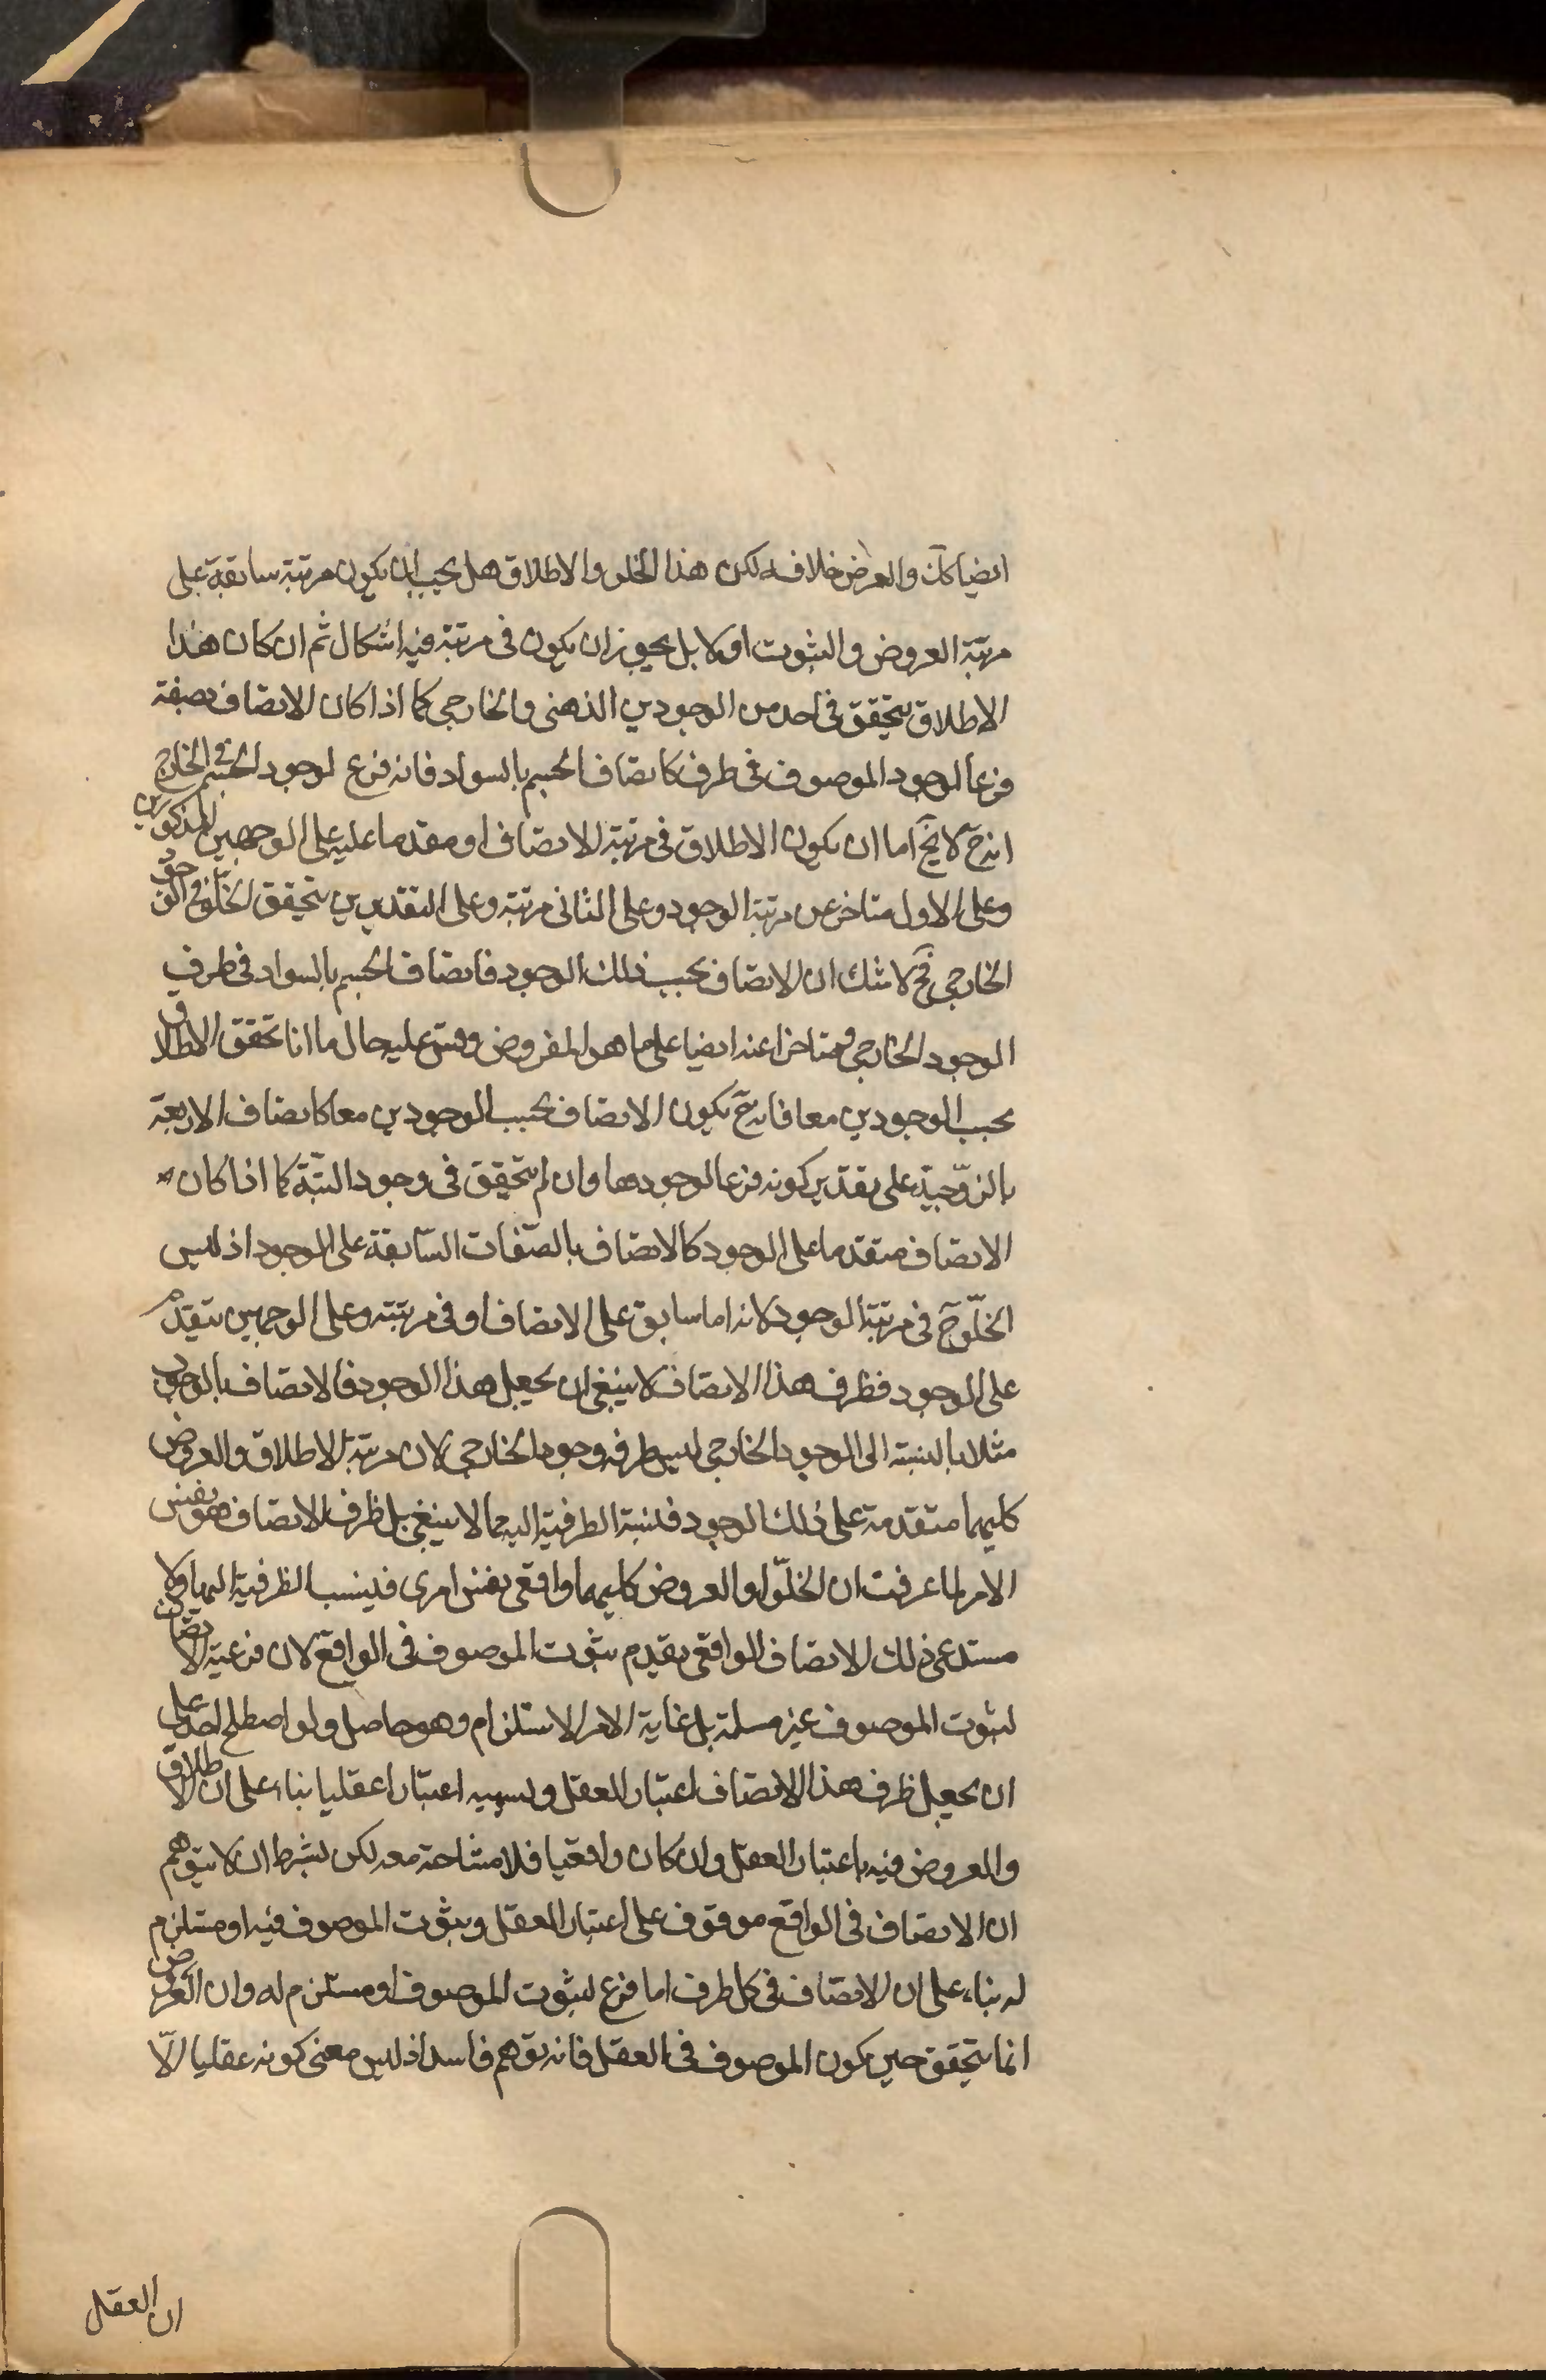 ايضا كك والعرض خلافه لكن هذا الخلو والاطلاق هل يجب ان يكون مرتبة سابقة على
مرتبة العروض والثبوت اولا بل يجوز ان يكون فى مرتبة فيه اشكال ثم ان كان هذا
الاطلاق يتحقق فى احد من الوجودين الذهنى والخارجى كما اذا كان الاتصاف بصفة
فرعا لوجود الموصوف فى ظرف كاتصاف الجسم بالسواد فانه فرع لوجود الجسم فى الخارج
اذ ح لا يخ اما ان يكون الاطلاق فى مرتبة الاتصاف او مقدما عليه على الوجهين المذكورين
وعلى الاول متاخر عن مرتبة الوجود وعلى الثانى مرتبته وعلى التقديرين يتحقق الخلو فى الوجود
الخارجى فح لا شك ان الاتصاف بحسب ذلك الوجود فاتصاف الجسم بالسواد فى ظرف
الوجود الخارجى ومتاخرا عنه ايضا على ما هو المفروض وقس عليه حال ما اذا تحقق الاطلاق
بحسب الوجودين معا فانه ح يكون الاتصاف بحسب الوجودين معا كاتصاف الاربعة
بالزوّجية على تقدير كونه فرعا لوجودها وان لم يتحقق فى وجود البتّة كما اذا كان
الاتصاف متقدما على الوجود كالاتصاف بالصّفات السّابقة على الوجود اذ ليس
الخلّو ح فى مرتبة الوجود لانه اما سابق على الاتصاف او فى مرتبته وعلى الوجهين يتقدم
على الوجود فظرف هذا الاتصاف لا ينبغى ان يجعل هذا الوجود فالاتصاف بالوجود
مثلا بالنسبة الى الوجود الخارجى ليس ظرفه وجود الخارجى لان مرتبة الاطلاق والعروض
كليهما متقدمة على ذلك الوجود فنسبة الظرفية اليهما لا ينبغى بل ظرف الاتصاف هو نفس
الامر لما عرفت ان الخلّو والعروض كليهما واقعى نفس امرى فينسب الظرفية اليها ولا
يستدعى ذلك الاتصاف الواقعى تقدم ثبوت الموصوف فى الواقع لان فرعية الاتصاف
لثبوت الموصوف غير مسلمة بل غاية الامر الاستلزام وهو حاصل ولو اصطلح احد على
ان يجعل ظرف هذا الاتصاف اعتبار العقل ويسميه اعتبارا عقليا بناء على ان الاطلاق
والعروض فيه باعتبار العقل وان كان واقعيا فلا مشاحة معه لكن بشرط ان لا يتوهم
ان الاتصاف فى الواقع موقوف على اعتبار العقل وثبوت الموصوف فيه او مستلزم
له بناء على ان الاتصاف فى كل ظرف اما فرع لثبوت الموصوف او مستلزم له وان العروض
انما يتحقق حين يكون الموصوف فى العقل فانه توهم فاسد اذ ليس معنى كونه عقليا الّا
ان العقل